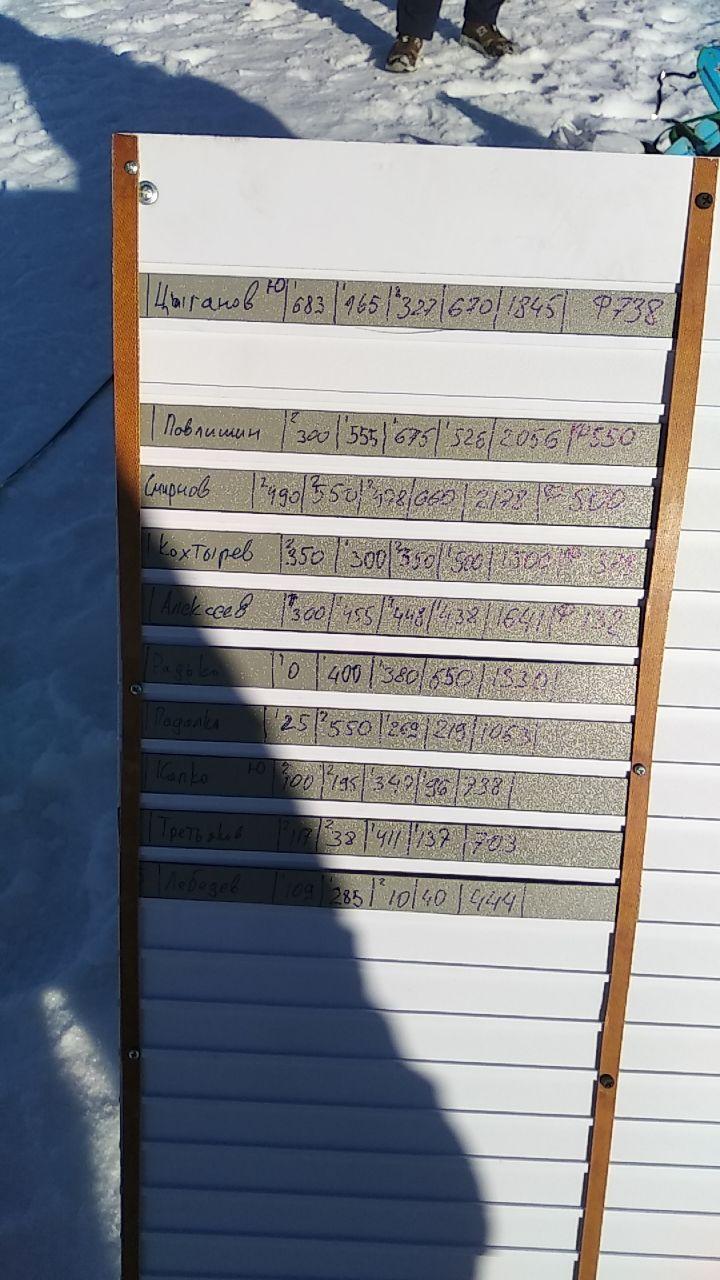 Цыганов Ю 683 165 327 670 1845 Ф738
Повлишин 300 555 675 526 2056 Ф550
Смирнов 490 550 478 660 2178 Ф 500
Кохтырев 350 300 350 500 1500
Алексеев 300 455 448 438 1641 Ф 132
Радько 0 400 380 550
Подолко 25 550 269 219 1063
Копко Ю 100 195 347 96 738
Третьяков 117 38 411 137 703
Лебедев 109 285 10 40 444